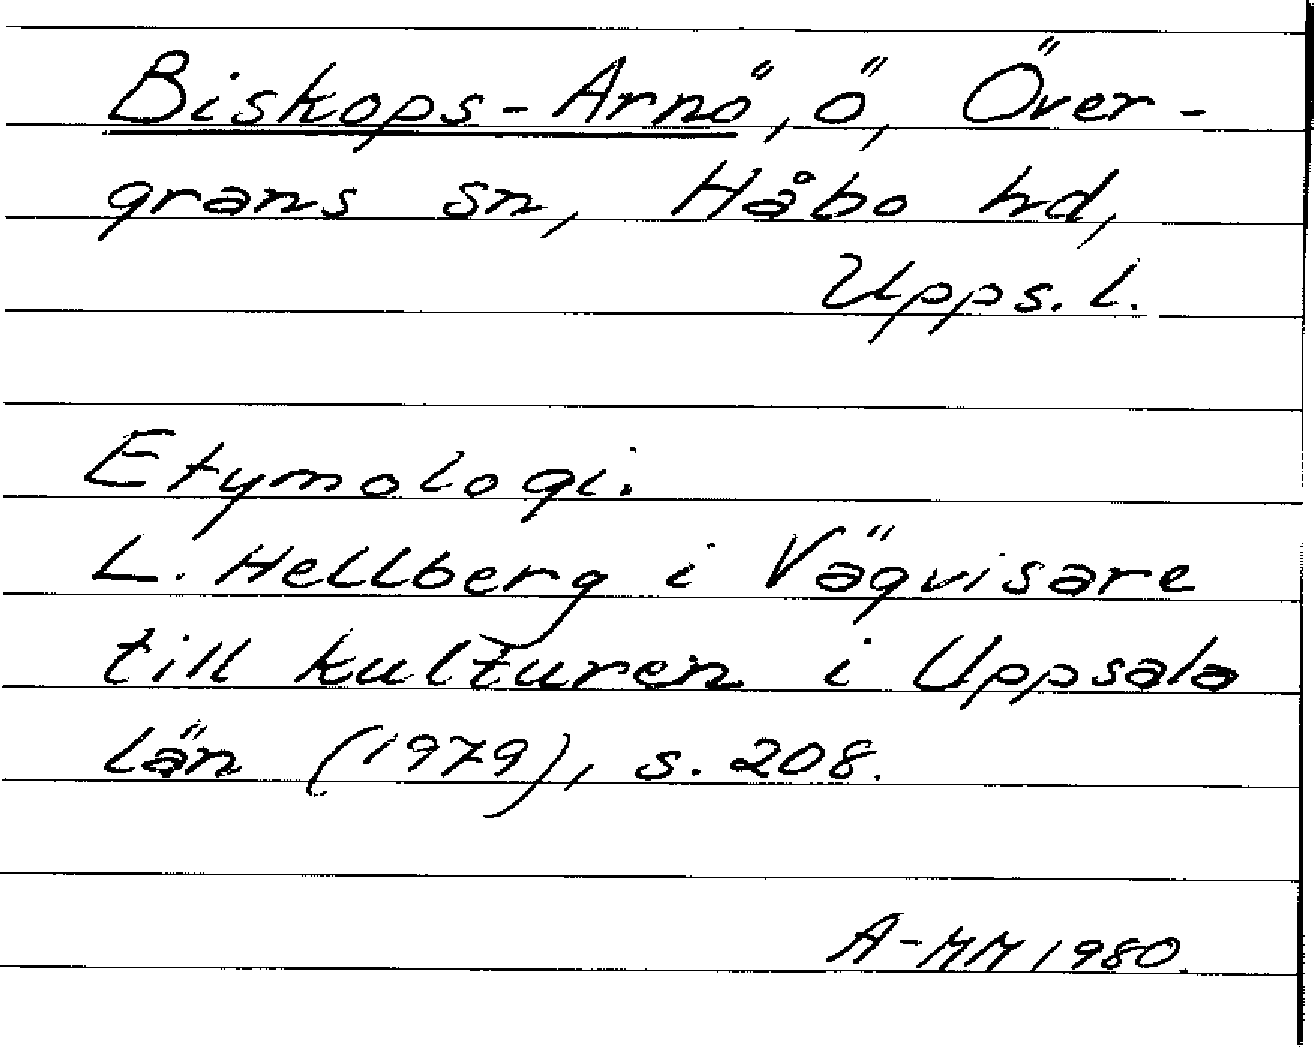 Biskops-Arnö, ö, Över-
grans sn, Håbo hd,
Upps. l.
Etymologi.
L. Hellberg i Vägvisare
till kulturen i Uppsala
län (1979), s. 208.
A-MM 1980.